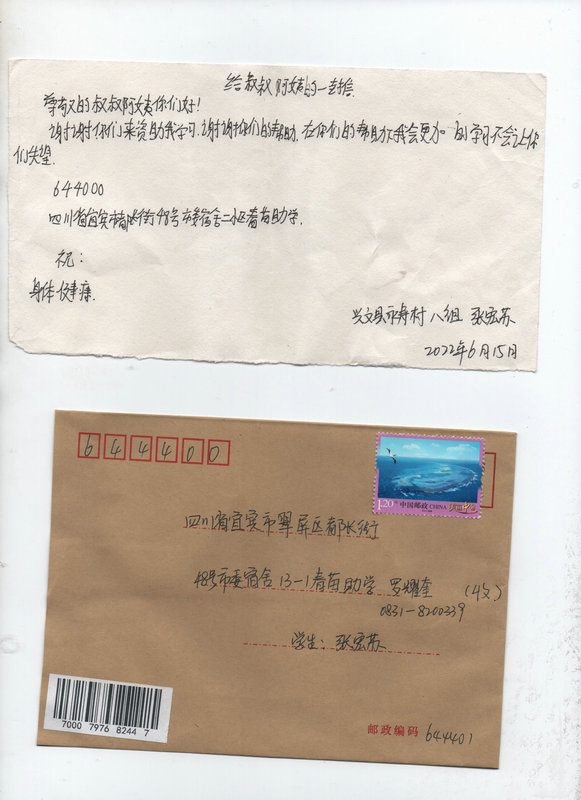 给叔叔阿姨的一封信
尊敬的叔叔阿姨你们好!
谢谢你们来资助我学习.谢谢你们的帮助.在你们的帮助下我会更加 的学习不会让你
们失望.
644000
四川省宜宾市都长街48号市委宿舍二小区春苗助学.
祝:
身体健康.
兴文县 舟村八组 张宏苏
2022年6月15日
644400
1.20元
中国邮政 CHINA
四川省宜宾市翠屏区都长街
48号市委宿舍13-1春苗助学 罗耀奎 (收)
0831-8200339
学生: 张宏苏
7000 7976 8244 7
邮政编码 644401